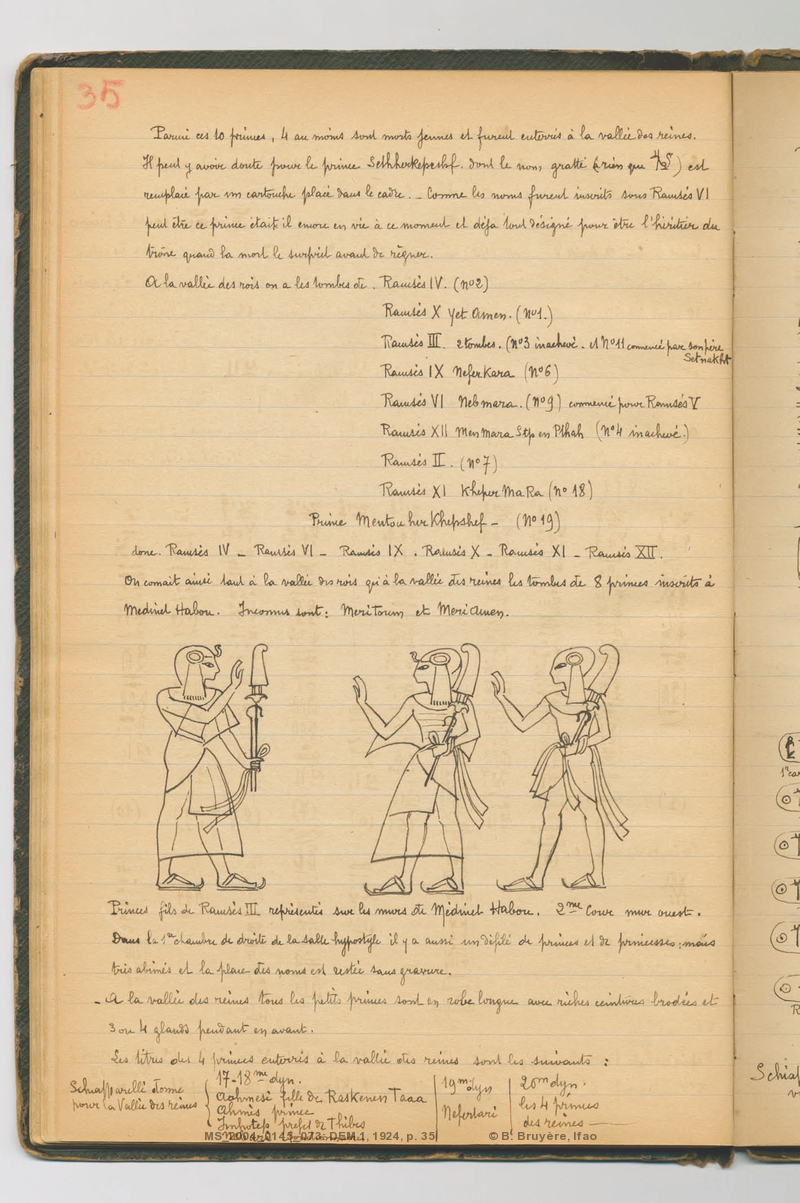 35
Parmi ces 10 princes, 4 au moins sont morts jeunes et furent enterrés à la vallée des reines.
Il peut y avoir doute pour le prince Sethherkepeshef. dont le nom, gratté (rien que ) est
remplacé par un cartouche placé dans le cadre. _ Comme les noms furent inscrits sous Ramsès VI
peut être ce prince était il encore en vie à ce moment et déja tout désigné pour être l'héritier du
trône quand la mort le surprit avant de règner.
A la vallée des rois on a les tombes de . Ramsès IV. (n°2)
Ramsès X Yet Amen. (n°1.)
Ramsès III. 2 tombes. (n°3 inachevé . et N°11 commencé par son père
Setnakht
Ramsès IX Neferkara (n°6)
Ramsès VI Nebmara. (n°9.) commencé pour Ramsès V
Ramsès XII Menmara Stp en Pthah (n°4 inachevé.)
Ramsès II. (n°7)
Ramsès XI Kheper Ma Ra (n° 18)
Prince Mentou her Khepshef _ (n°19)
donc. Ramsès IV _ Ramsès VI _ Ramsès IX . Ramsès X _ Ramsès XI _ Ramsès XII.
On connait ainsi tant à la vallée des rois qu'à la vallée des reines les tombes de 8 princes inscrits à
Medinet Habou. Inconnus sont : Meritoum et Meri Amen.
Princes fils de Ramsès III représentés sur les murs de Médinet Habou. 2me Cour mur ouest.
Dans la 1re chambre de droite de la salle hypostyle il y a aussi un défilé de princes et de princesses ; mais
très abimés et la place des noms est restée sans gravure.
_ A la vallée des reines tous les petits princes sont en robe longue avec riches ceintures brodées et
3 ou 4 glands pendant en avant.
Les titres des 4 princes enterrés à la vallée des reines sont les suivants :
Schiapparelli donne
pour la Vallée des reines
17-18me dyn.
Aahmesi fille de Raskenen Taaa
Ahmès prince
Imhotep préfet de Thèbes
19me dyn
Nefertari
20me dyn.
les 4 princes
des reines
MS_2004_0145_073, DEM 1, 1924, p. 35
© B. Bruyère, Ifao